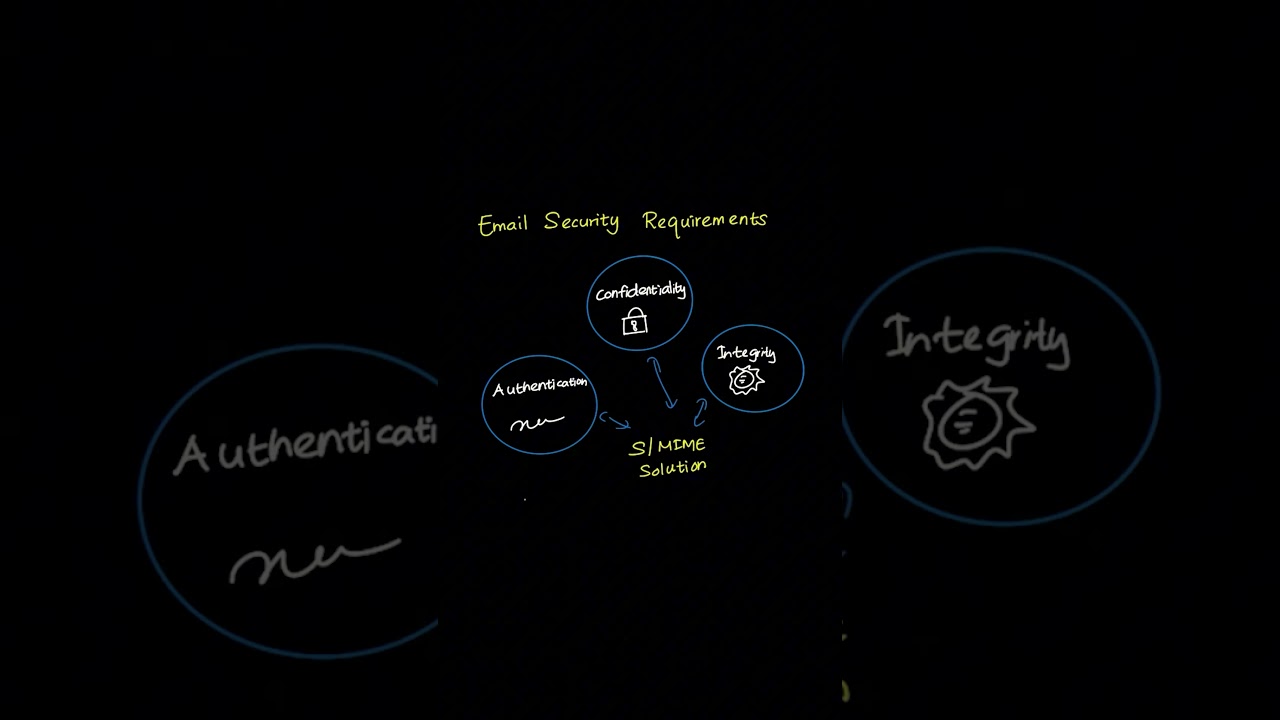 Email Security Requirements
Confidentiality
Integrity
Authentication
S/MIME
Solution
Integrity
Authenticati